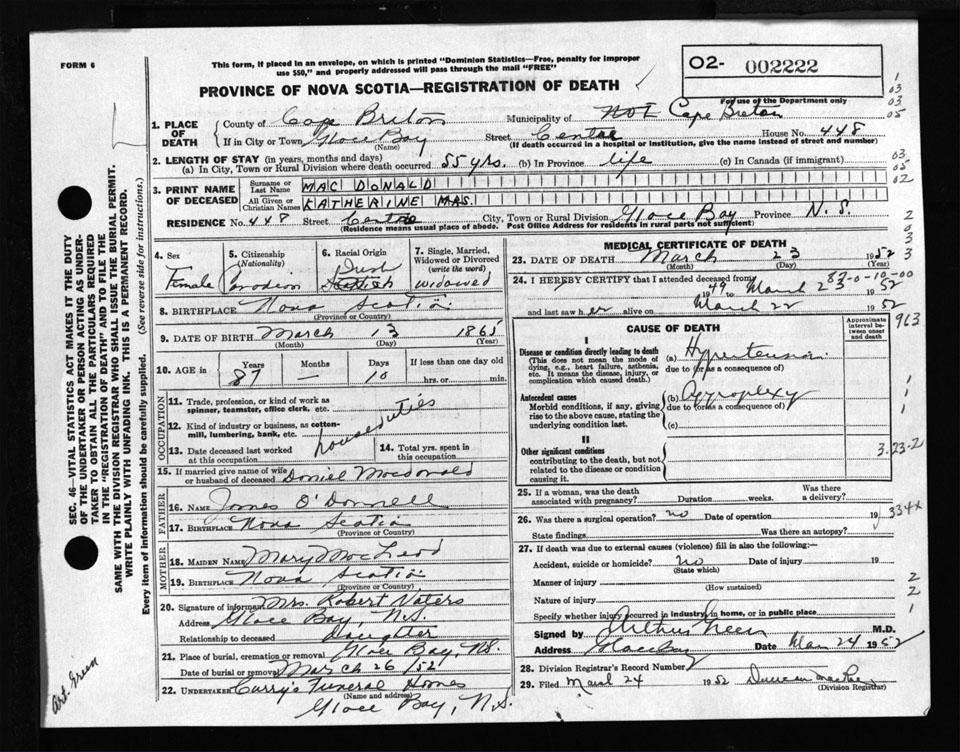 FORM 6
This form, if placed in an envelope, on which is printed "Dominion Statistics—Free, penalty for improper
use $50," and properly addressed will pass through the mail "FREE"
O2- 002222
PROVINCE OF NOVA SCOTIA—REGISTRATION OF DEATH
For use of the Department only
1. PLACE OF DEATH
County of Cape Breton Municipality of Not Cape Breton
If in City or Town Glace Bay Street Centre House No. 448
(Name) (If death occurred in a hospital or institution, give the name instead of street and number)
2. LENGTH OF STAY (in years, months and days)
(a) In City, Town or Rural Division where death occurred 55 yrs. (b) In Province life (c) In Canada (if immigrant)
3. PRINT NAME OF DECEASED
Surname or Last Name MAC DONALD
All Given or Christian Names KATHERINE MRS.
RESIDENCE No. 448 Street Centre City, Town or Rural Division Glace Bay Province N.S.
(Residence means usual place of abode. Post Office Address for residents in rural parts not sufficient)
4. Sex
Female
5. Citizenship (Nationality)
Canadian
6. Racial Origin
Irish
Scottish
7. Single, Married, Widowed or Divorced (write the word)
widowed
8. BIRTHPLACE Nova Scotia
(Province or Country)
9. DATE OF BIRTH March 13 1865
(Month) (Day) (Year)
10. AGE in Years Months Days If less than one day old
87 — 10 hrs. or min.
OCCUPATION
11. Trade, profession, or kind of work as spinner, teamster, office clerk, etc.
12. Kind of industry or business, as cotton-mill, lumbering, bank, etc.
household duties
13. Date deceased last worked at this occupation
14. Total yrs. spent in this occupation
15. If married give name of wife or husband of deceased Daniel Macdonald
FATHER
16. NAME James O'Donnell
17. BIRTHPLACE Nova Scotia
(Province or Country)
MOTHER
18. MAIDEN NAME Mary MacLeod
19. BIRTHPLACE Nova Scotia
(Province or Country)
20. Signature of informant Mrs. Robert Waters
Address Glace Bay, N.S.
Relationship to deceased Daughter
21. Place of burial, cremation or removal Glace Bay, N.S.
Date of burial or removal March 26/52
22. UNDERTAKER Curry's Funeral Homes
(Name and address)
Glace Bay, N.S.
MEDICAL CERTIFICATE OF DEATH
23. DATE OF DEATH March 23 1952
(Month) (Day) (Year)
87-0-10-00
24. I HEREBY CERTIFY that I attended deceased from
1949 to March 23 1952
and last saw her alive on March 22 1952
CAUSE OF DEATH
Approximate interval between onset and death
I
Disease or condition directly leading to death
(This does not mean the mode of dying, e.g., heart failure, asthenia, etc. It means the disease, injury, or complication which caused death.)
(a) Hypertension
due to (or as a consequence of)
Antecedent causes
Morbid conditions, if any, giving rise to the above cause, stating the underlying condition last.
(b) Appoplexy
due to (or as a consequence of)
(c)
II
Other significant conditions
contributing to the death, but not related to the disease or condition causing it.
3-23-2
25. If a woman, was the death associated with pregnancy? Duration weeks. Was there a delivery?
26. Was there a surgical operation? no Date of operation 19
State findings Was there an autopsy?
27. If death was due to external causes (violence) fill in also the following:—
Accident, suicide or homicide? No Date of injury 19
(State which)
Manner of injury
(How sustained)
Nature of injury
Specify whether injury occurred in industry, in home, or in public place
Signed by Arthur M.D.
Address Glace Bay Date Mar 24 1952
28. Division Registrar's Record Number
29. Filed March 24 1952 Duncan
(Division Registrar)
963
334x
SEC. 46—VITAL STATISTICS ACT MAKES IT THE DUTY
OF THE UNDERTAKER OR PERSON ACTING AS UNDER-
TAKER TO OBTAIN ALL THE PARTICULARS REQUIRED
IN THE "REGISTRATION OF DEATH" AND TO FILE THE
SAME WITH THE DIVISION REGISTRAR WHO SHALL ISSUE THE BURIAL PERMIT.
WRITE PLAINLY WITH UNFADING INK. THIS IS A PERMANENT RECORD.
Every item of information should be carefully supplied. (See reverse side for instructions.)
Art. Green